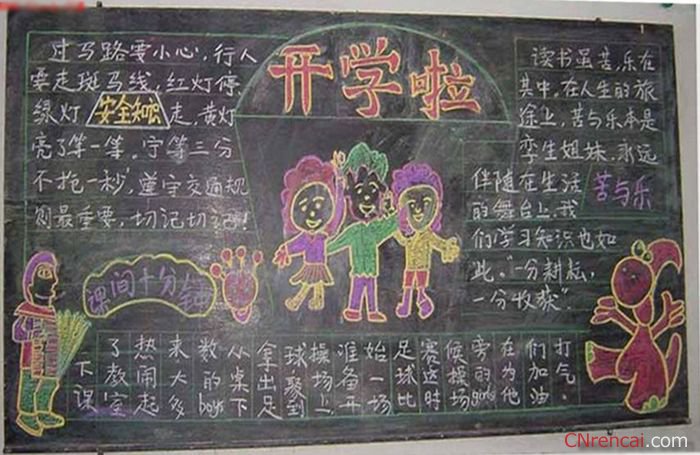 开学啦
过马路要小心,行人
要走斑马线,红灯停,
绿灯 安全知识 走,黄灯
亮了等一等。宁等三分
不抢一秒,遵守交通规
则最重要,切记切记!
读书虽苦,乐在
其中,在人生的旅
途上,苦与乐本是
孪生姐妹,永远
伴随在生活
苦与乐
的舞台上,我
们学习知识也如
此。“一分耕耘,
一分收获”。
课间十分钟
下课
了教室
热闹起
来大多
数的boys
从桌下
拿出足
球聚到
操场上
准备开
始一场
足球比
赛这时
候操场
旁的girls
在为他
们加油
打气。
CNrencai.com